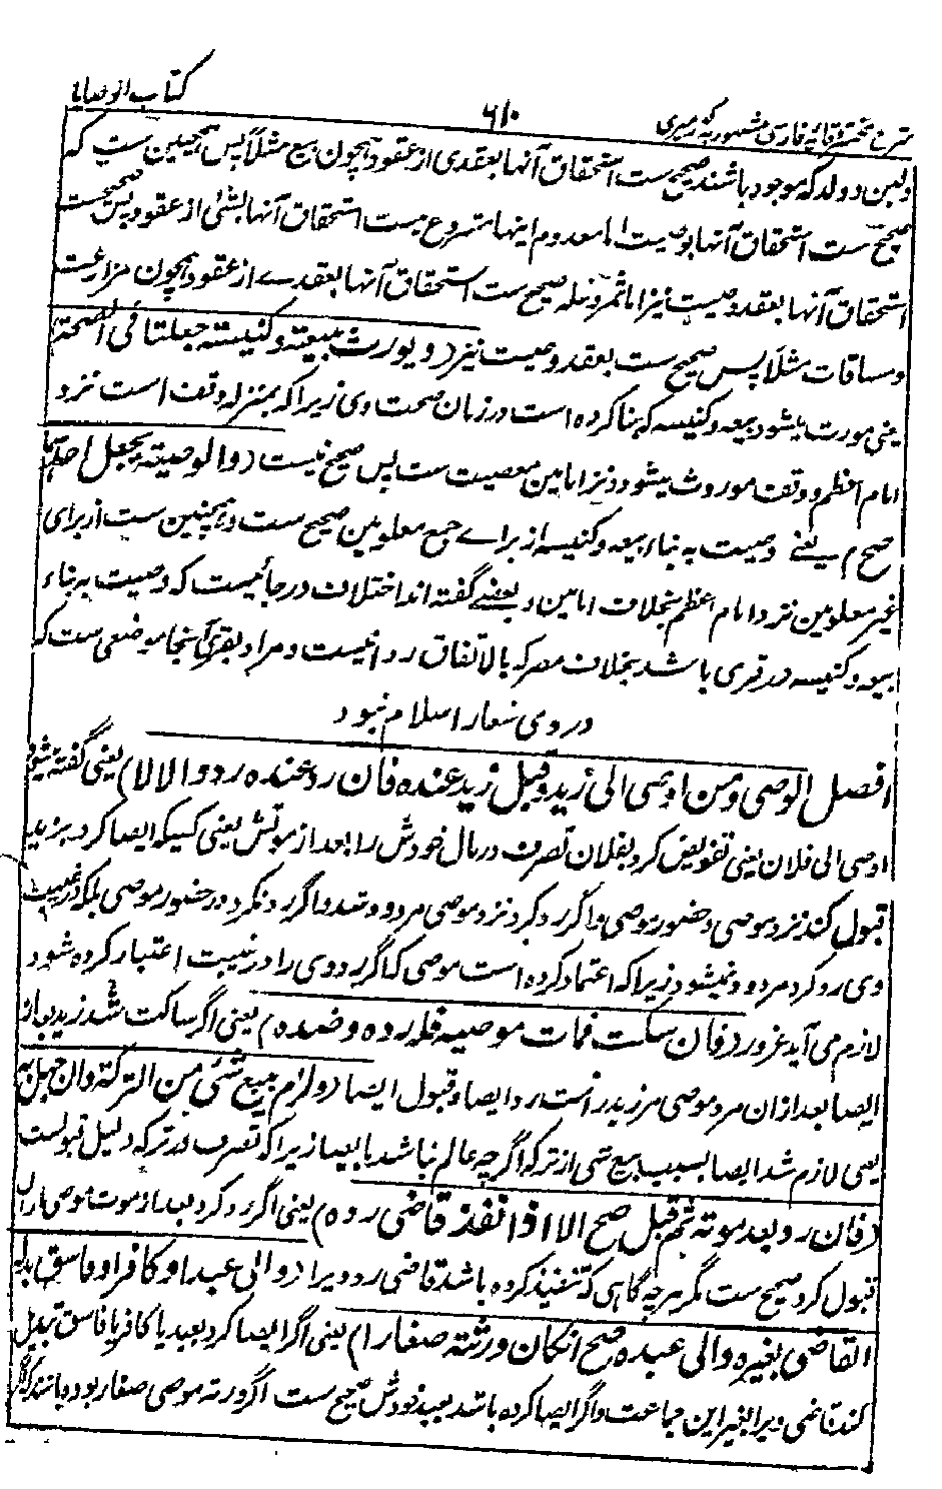 شرح مختصر وقایه فارسی مشهور به کیدیری ۶۱۰ کتاب الوصایا
ولبن و ولد که موجود باشند صحیح ست استحقاق آنها بعقدی از عقود همچون بیع مثلاً پس همچنین ست که
صحیح ست استحقاق آنها بوصیت اما معدوم اینها مشروع نیست استحقاق آنها بشئی از عقود پس صحیح نیست
استحقاق آنها بعقد وصیت نیز اما ثمر و غله صحیح ست استحقاق آنها بعقدے از عقود همچون مزارعت
و مساقات مثلاً پس صحیح ست بعقد وصیت نیز (و یورث بیعة و کنیسة جعلتا فی الصحة)
یعنی مورث میشود بیعه و کنیسه که بنا کرده است در زمان صحت وی زیرا که بمنزله وقف است نزد
امام اعظم و وقف موروث میشود و نزد امامین معصیت ست پس صحیح نیست (و الوصیة بجعل احدهما
صح) م یعنے وصیت به بناء بیعه و کنیسه از براے جمع معلومین صحیح ست و همچنین ست از برای
غیر معلومین نزد امام اعظم بخلاف امامین و بعضے گفته اند اختلاف در جائیست که وصیت به بناء
بیعه و کنیسه در قری باشد بخلاف مصر که بالاتفاق روا نیست و مراد بقری آنجا موضعی ست که
در وی شعار اسلام نبود
(فصل الوصی و من اوصی الی زید و قبل زید عنده فان رد عنده رد و الا لا) یعنی گفته میشود
اوصی الی فلان یعنی تفویض کرد بفلان تصرف در مال خودش را بعد از موتش یعنی کسیکه ایصا کرد بزید
قبول کند نزد موصی و حضور موصی و اگر رد کرد نزد موصی مردود شد و اگر رد نکرد در حضور موصی بلکه در غیبت
وی رد کرد مردود نمیشود زیرا که اعتماد کرده است موصی که اگر رد وی را در غیبت اعتبار کرده شود
لازم می آید غرور (فان سکت فمات موصیه فله رده و ضده) یعنی اگر ساکت شد زید بعد از
ایصا بعد ازان مرد موصی مر زید راست رد ایصا و قبول ایصا (و لزم ببیع شئی من الترکة و ان جهل به)
یعنی لازم شد ایصا بسبب بیع شی از ترکه اگر چه عالم نباشد بایصا زیرا که تصرف در ترکه دلیل قبولست
(فان رد بعد موته ثم قبل صح الا اذا نفذ قاضی رده) یعنی اگر رد کرد بعد از موت موصی باز
قبول کرد صحیح ست مگر هر چه گاهی که تنفیذ کرده باشد قاضی رد ویرا (و الی عبد او کافر او فاسق بدله
القاضی بغیره و الی عبده صح ان کان ورثته صغارا) یعنی اگر ایصا کرد بعبد یا کافر یا فاسق تبدیل
کند قاضی ویرا بغیر این جماعت و اگر ایصا کرده باشد بعبد خودش صحیح ست اگر ورثه موصی صغار بوده باشند